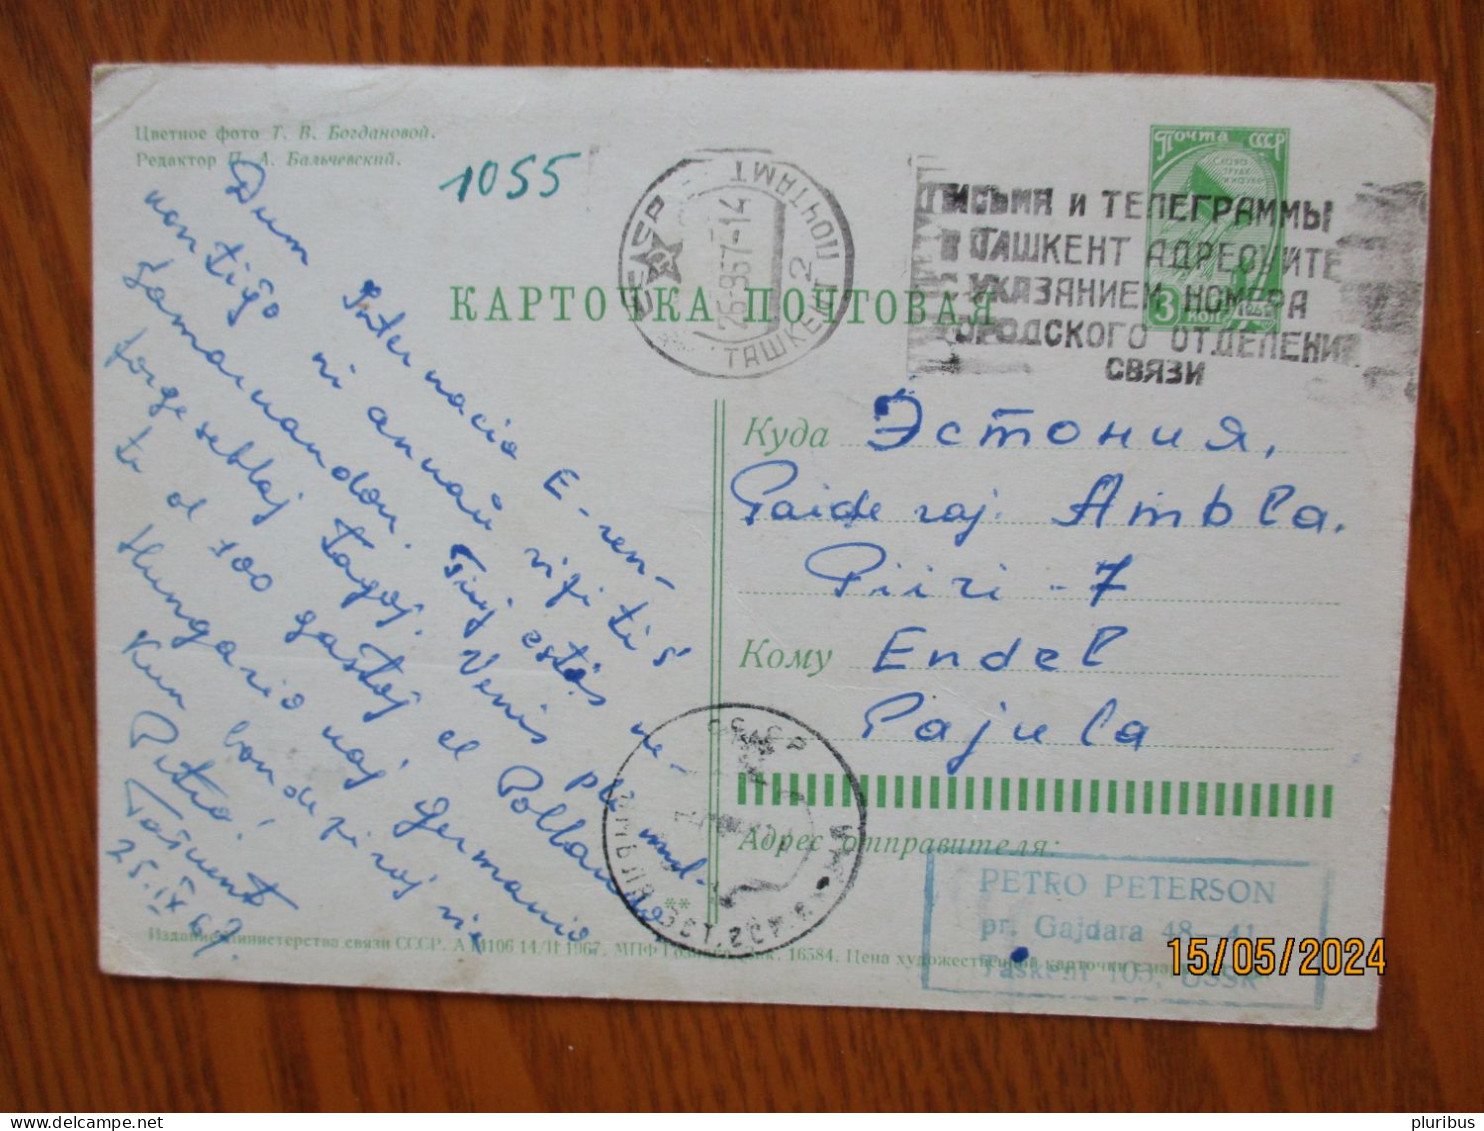 Цветное фото Т. В. Богдановой.
Редактор П. А. Бальчевский.
1055
Почта СССР
3 коп
СССР
ТАШКЕНТ 2 ПОЧТАМТ
26-9 67-14
ПИСЬМА И ТЕЛЕГРАММЫ
В ТАШКЕНТ АДРЕСУЙТЕ
С УКАЗАНИЕМ НОМЕРА
ГОРОДСКОГО ОТДЕЛЕНИЯ
СВЯЗИ
КАРТОЧКА ПОЧТОВАЯ
Dum Internacia E-ren-
kontiĝo ni ankaŭ vizitis
Samarkandon. Tiuj estas ne-
forgeseblaj tagoj. Venis pli mul-
tu ol 100 gastoj el Pollando
Hungario kaj Germanio
Kun bondeziroj via
Petro!
Taŝkent
25.IX 67.
Куда Эстония,
Paide raj. Ambla.
Piiri - 7
Кому Endel
Pajula
Адрес отправителя:
PETRO PETERSON
pr. Gajdara 48—41
Taŝkent 103, USSR
Издание Министерства связи СССР. 14/II 1967. МПФ Гознака. Зак. 16584. Цена художественной карточки с маркой
15/05/2024
pluribus